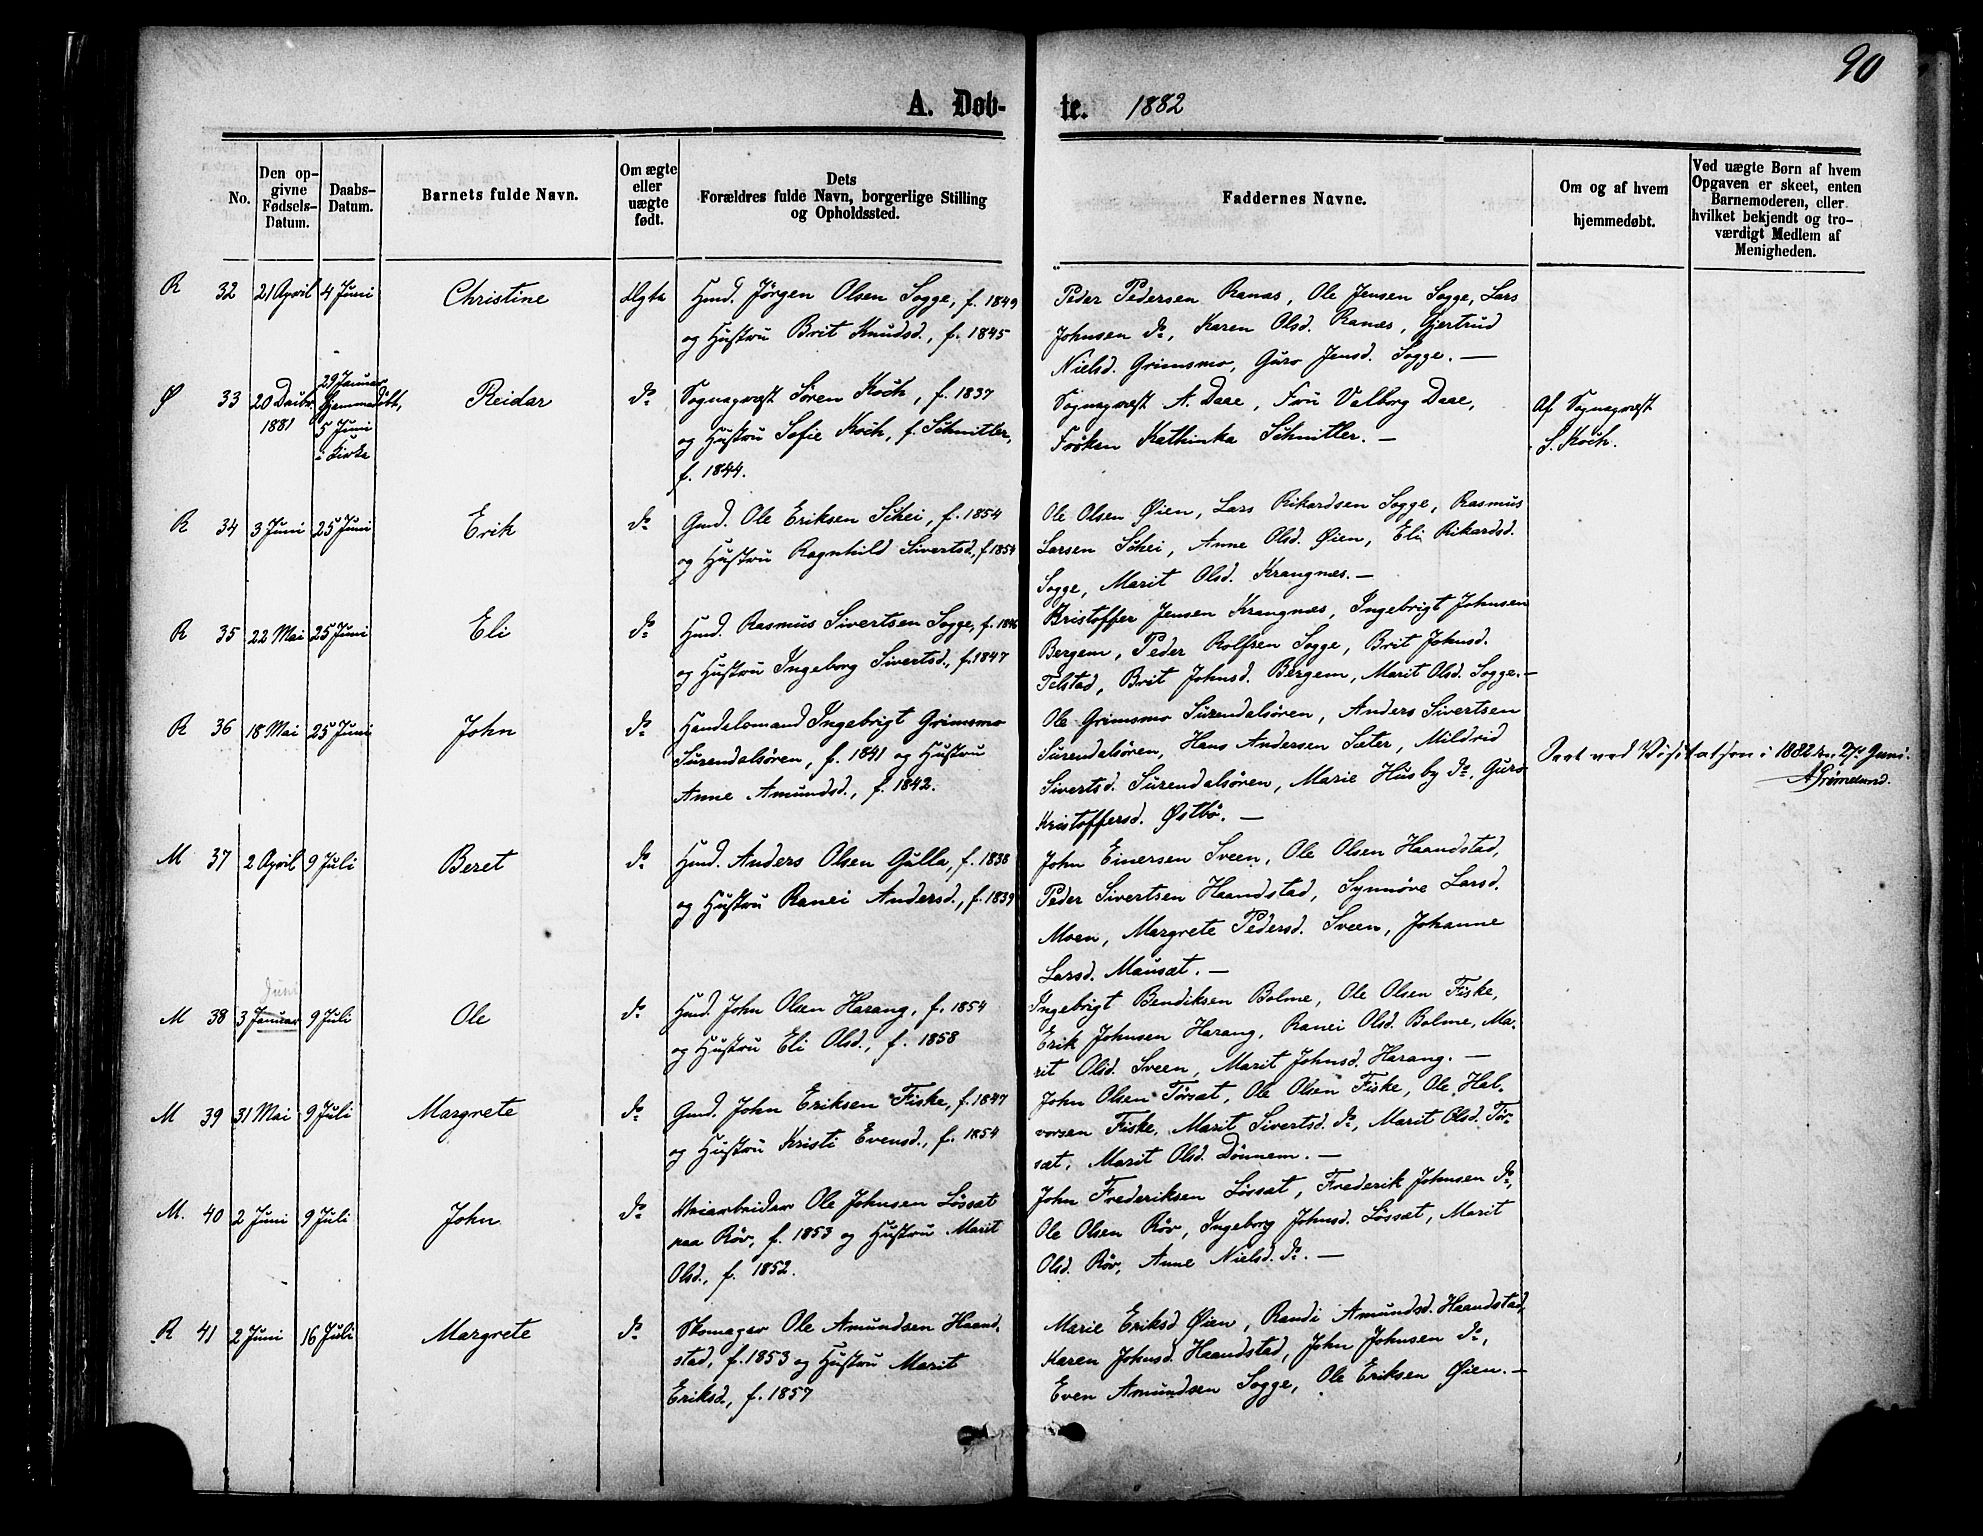 90
A. Døb- te. 1882
No.
Den op-
givne
Fødsels-
Datum.
Daabs-
Datum.
Barnets fulde Navn.
Om ægte
eller
uægte
født.
Dets
Forældres fulde Navn, borgerlige Stilling
og Opholdssted.
Faddernes Navne.
Om og af hvem
hjemmedøbt.
Ved uægte Børn af hvem
Opgaven er skeet, enten
Barnemoderen, eller
hvilket bekjendt og tro-
værdigt Medlem af
Menigheden.
R 32 21 April 4 Juni Christine Ægte
Hmd. Jørgen Olsen Sogge, f. 1849
og Hustru Brit Knudsd., f. 1845
Peder Pedersen Ranæs, Ole Jensen Sogge, Lars
Johnsen do, Karen Olsd. Ranæs, Gjertrud
Nielsd. Grimsmo, Guro Jensd. Sogge. —
Ø 33 20 Decbr. 1881
29 Januar
hjemmedøbt,
5 Juni
i Kirke
Reidar do
Sognaprest Søren Koch, f. 1837
og Hustru Sofie Koch, f. Schnitler,
f. 1844.
Sognaprest A. Daae, Fru Valborg Daae,
Frøken Kathinka Schnitler. —
Af Sognaprest
S. Koch.
R 34 3 Juni 25 Juni Erik do
Gmd. Ole Eriksen Schei, f. 1854
og Hustru Ragnhild Sivertsd. f. 1854
Ole Olsen Øien, Lars Rikardsen Sogge, Rasmus
Larsen Schei, Anne Olsd. Øien, Eli Rikardsd.
Sogge, Marit Olsd. Krangnæs. —
R 35 22 Mai 25 Juni Eli do
Hmd. Rasmus Sivertsen Sogge, f. 1846
og Hustru Ingeborg Sivertsd., f. 1847
Kristoffer Jensen Krangnæs, Ingebrigt Johnsen
Bergem, Peder Rolfsen Sogge, Brit Johnsd.
Telstad, Brit Johnsd. Bergem, Marit Olsd. Sogge. —
R 36 18 Mai 25 Juni John do
Handelsmand Ingebrigt Grimsmo
Surendalsøren, f. 1841 og Hustru
Anne Amundsd., f. 1842.
Ole Grimsmo Surendalsøren, Anders Sivertsen
Surendalsøren, Hans Andersen Sæter, Mildrid
Sivertsd. Surendalsøren, Marie Husby do, Guro
Kristoffersd. Østbø. —
ved Visitatsen i 1882 27 Juni.
M 37 2 April 9 Juli Beret do
Hmd. Anders Olsen Gulla, f. 1838
og Hustru Ranei Andersd., f. 1839
John Einersen Sveen, Ole Olsen Haandstad,
Peder Sivertsen Haandstad, Synnøve Larsd.
Moen, Margrete Pedersd. Sveen, Johanne
Larsd. Mausæt. —
Juni
M 38 3 Januar 9 Juli Ole do
Hmd. John Olsen Harang, f. 1854
og Hustru Eli Olsd., f. 1858
Ingebrigt Bendiksen Bolme, Ole Olsen Fiske,
Erik Johnsen Harang, Ranei Olsd. Bolme, Ma-
rit Olsd. Sveen, Marit Johnsd. Harang. —
M 39 31 Mai 9 Juli Margrete do
Gmd. John Eriksen Fiske, f. 1847
og Hustru Kristi Evensd., f. 1854
John Olsen Tørsæt, Ole Olsen Fiske, Ole Hal-
vorsen Fiske, Marit Sivertsd. do, Marit Olsd. Tør-
sæt, Marit Olsd. Dønnem. —
M. 40 2 Juni 9 Juli John do
Veiarbeider Ole Johnsen Løssæt
paa Røv, f. 1853 og Hustru Marit
Olsd., f. 1852.
John Frederiksen Løssæt, Frederik Johnsen do,
Ole Olsen Røv, Ingeborg Johnsd. Løssæt, Marit
Olsd. Røv, Anne Nielsd. do. —
R 41 2 Juni 16 Juli Margrete do
Skomager Ole Amundsen Haand-
stad, f. 1853 og Hustru Marit
Eriksd., f. 1857
Marie Eriksd. Øien, Randi Amundsd. Haandstad,
Karen Johnsd. Haandstad, John Johnsen do,
Even Amundsen Sogge, Ole Eriksen Øien. —